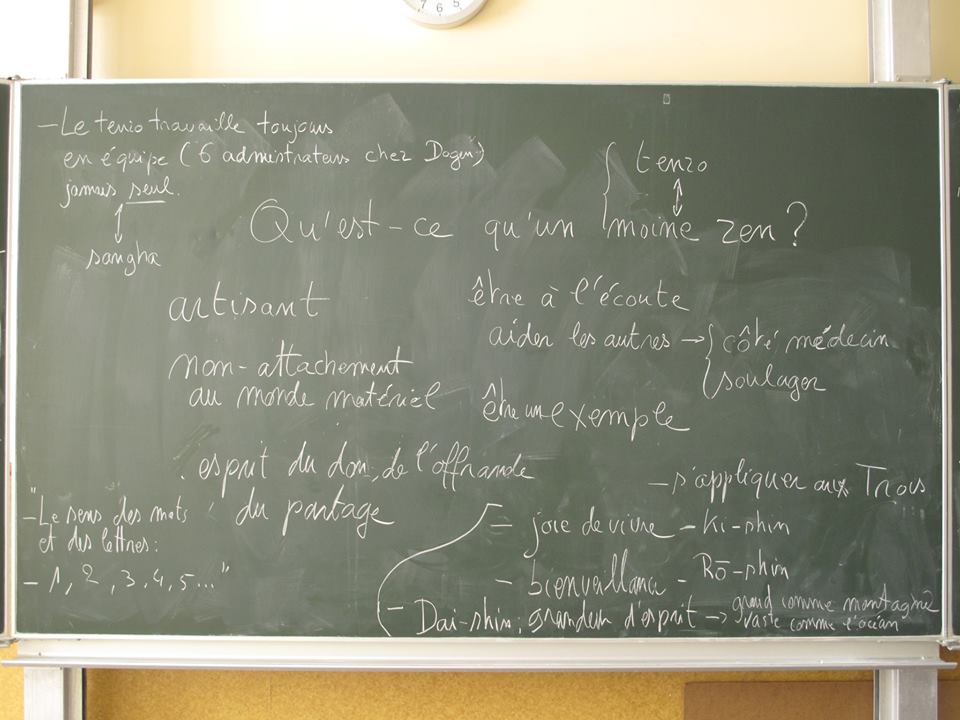 7 6 5
- Le tenzo travaille toujours
en équipe (6 administrateurs chez Dogen)
jamais seul.
sangha
tenzo
Qu'est-ce qu'un moine zen?
artisant
non-attachement
au monde matériel
esprit du don, de l'offrande
du partage
être à l'écoute
aider les autres → côté médecin
soulager
être un exemple
- s'appliquer aux Trois
= joie de vivre - Ki-shin
- bienveillance - Rō-shin
- Dai-shin: grandeur d'esprit → grand comme montagne
vaste comme l'océan
- "Le sens des mots
et des lettres:
- 1, 2, 3, 4, 5..."